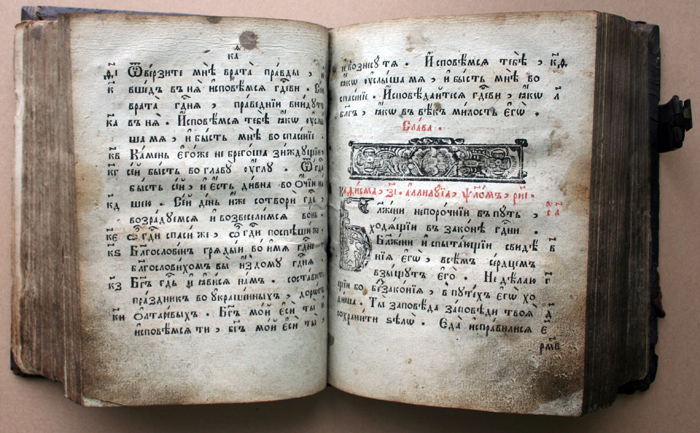 к҃а
ѳ҃і Ѿверзите мнѣ врата правды,
к҃ вшед въ нѧ исповѣмсѧ гдⷭ҇еви. Сїѧ
врата гдⷭ҇нѧ, праведнїи внидутъ
к҃а в нѧ. Исповѣмсѧ тебѣ ꙗкѡ ѹслы
ша мѧ, и бысть мнѣ во спасенїе.
к҃в Камень егоже не брегоша зиждущїи
к҃г сей бысть во главу ѹглу. Ѿ гдⷭ҇а
бысть сей, и есть дивна во ѻчїю на
к҃д шею. Сей день иже сотвори гдⷭ҇ь,
возрадуемсѧ и возвеселимсѧ вонь.
к҃е Ѽ гдⷭ҇и спаси же, ѽ гдⷭ҇и поспѣши же.
к҃ѕ Благословенъ грѧдый во имѧ гдⷭ҇не
благословихомъ вы из дому гдⷭ҇нѧ.
к҃з Бг҃ъ гдⷭ҇ь и ꙗвисѧ намъ. составите
праздникъ во ѹкрашенныхъ, до рогъ
к҃и ѻлтаревыхъ. Бг҃ъ мой еси ты, и
исповѣмсѧ ти, бг҃ъ мой еси ты,
и вознесу тѧ. Исповѣмсѧ тебѣ, к҃ѳ
ꙗкѡ ѹслыша мѧ, и бысть мнѣ во
спасенїе. Исповѣдайтесѧ гдⷭ҇еви, ꙗкѡ л҃
благъ, ꙗкѡ въ вѣкъ милость егѡ.
Слава.
Каѳисма, з҃і. аллилуїа, ѱаломъ, р҃иі.
Блажени непорочнїи въ путь,
ходѧщїи в законѣ гдⷭ҇ни.
Блажени испытающїи свидѣ в҃
нїѧ егѡ, всѣмъ сердцемъ
взыщутъ его. Не дѣлаю г҃
щїи бо беззаконїѧ, в путехъ егѡ хо
диша. Ты заповѣда заповѣди твоѧ д҃
сохранити ѕѣлѡ. Еда исправилисѧ е҃
рм҃в